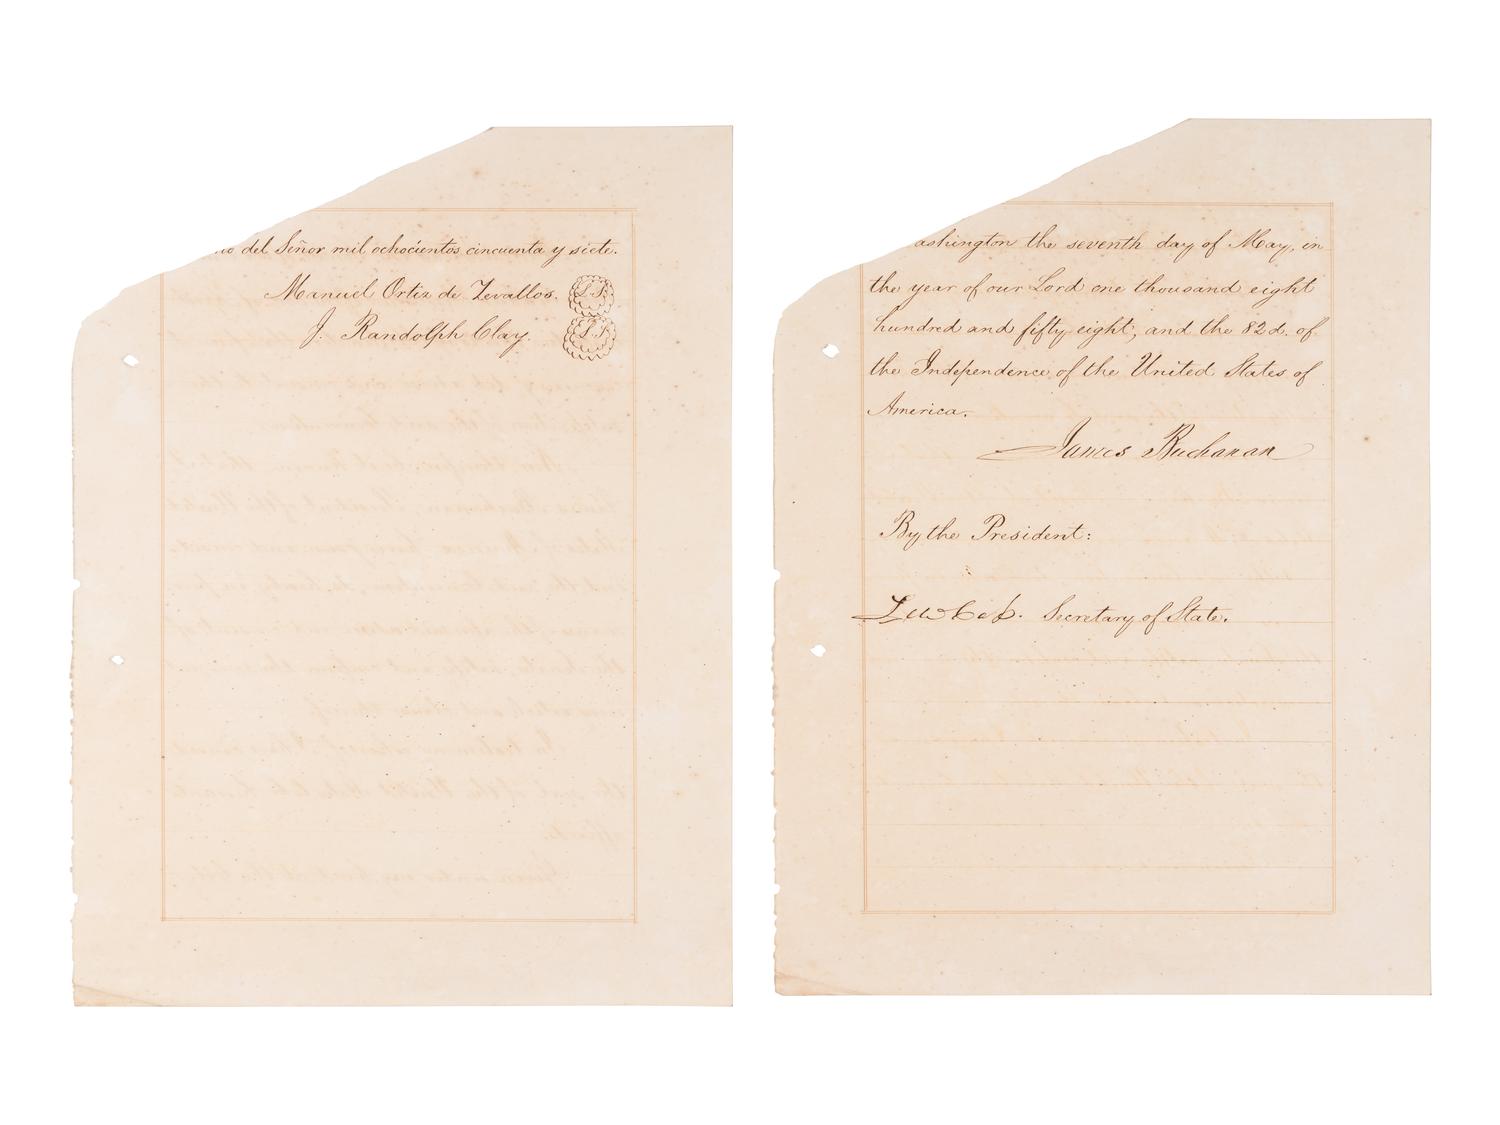 del Señor mil ochocientos cincuenta y siete.
Manuel Ortiz de Zevallos. L.S.
J. Randolph Clay. L.S.
ashington the seventh day of May, in
the year of our Lord one thousand eight
hundred and fifty eight, and the 82d. of
the Independence of the United States of
America.
James Buchanan
By the President:
Lew Cass. Secretary of State.